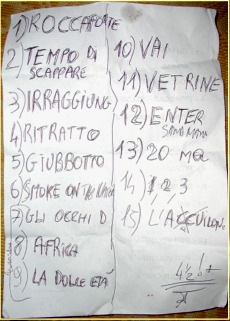 1) ROCCAFORTE
2) TEMPO DI
SCAPPARE
3) IRRAGGIUNG
4) RITRATTO
5) GIUBBOTTO
6) SMOKE ON THE WATER
7) GLI OCCHI D
8) AFRICA
9) LA DOLCE ETÀ
10) VAI
11) VETRINE
12) ENTER
SANDMAN
13) 20 MQ
14) 1, 2 3
15) L'AQUILONE